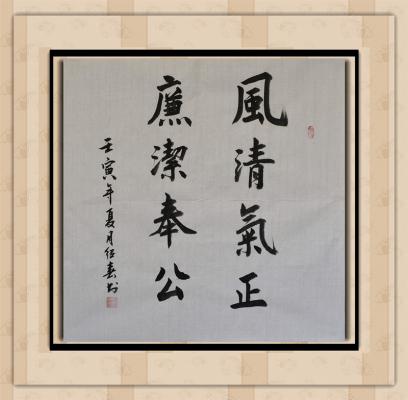 風清氣正
廉潔奉公
壬寅年夏月任春书